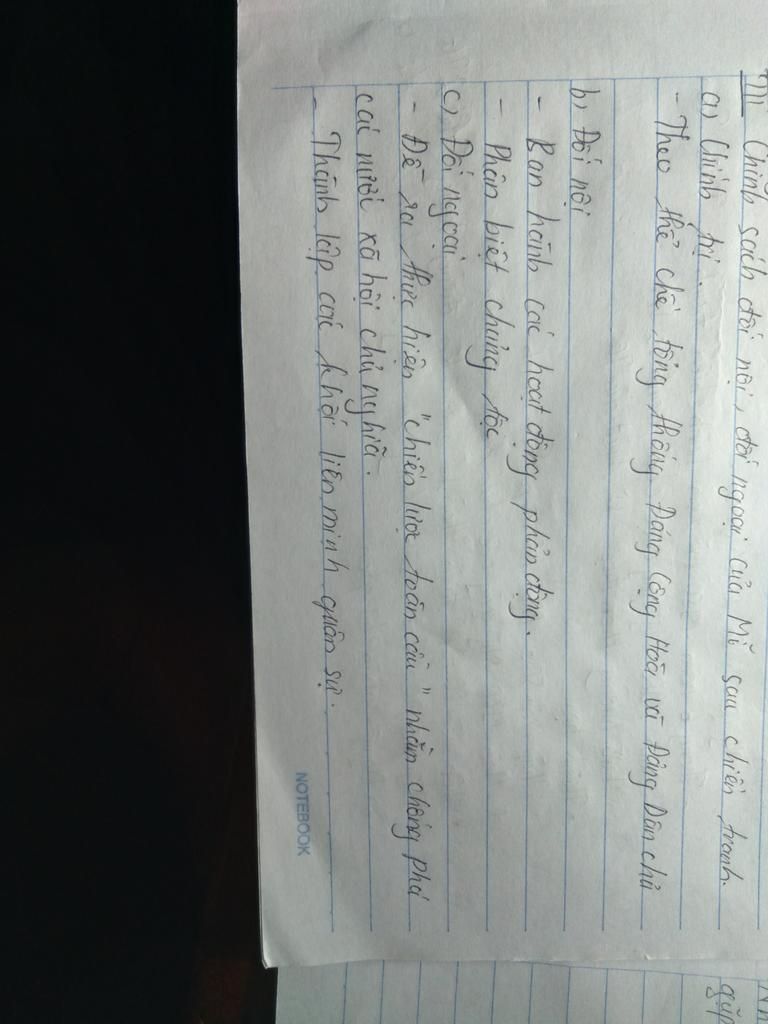 III Chính sách đối nội, đối ngoại của Mĩ sau chiến tranh.
a) Chính trị.
- Theo thể chế tổng thống Đảng Cộng Hoà và Đảng Dân chủ
b) Đối nội
- Ban hành các hoạt động phản động.
- Phân biệt chủng tộc
c) Đối ngoại
- Đề ra, thực hiện "chiến lược toàn cầu" nhằm chống phá
các nước xã hội chủ nghĩa.
- Thành lập các khối liên minh quân sự.
NOTEBOOK
gặp